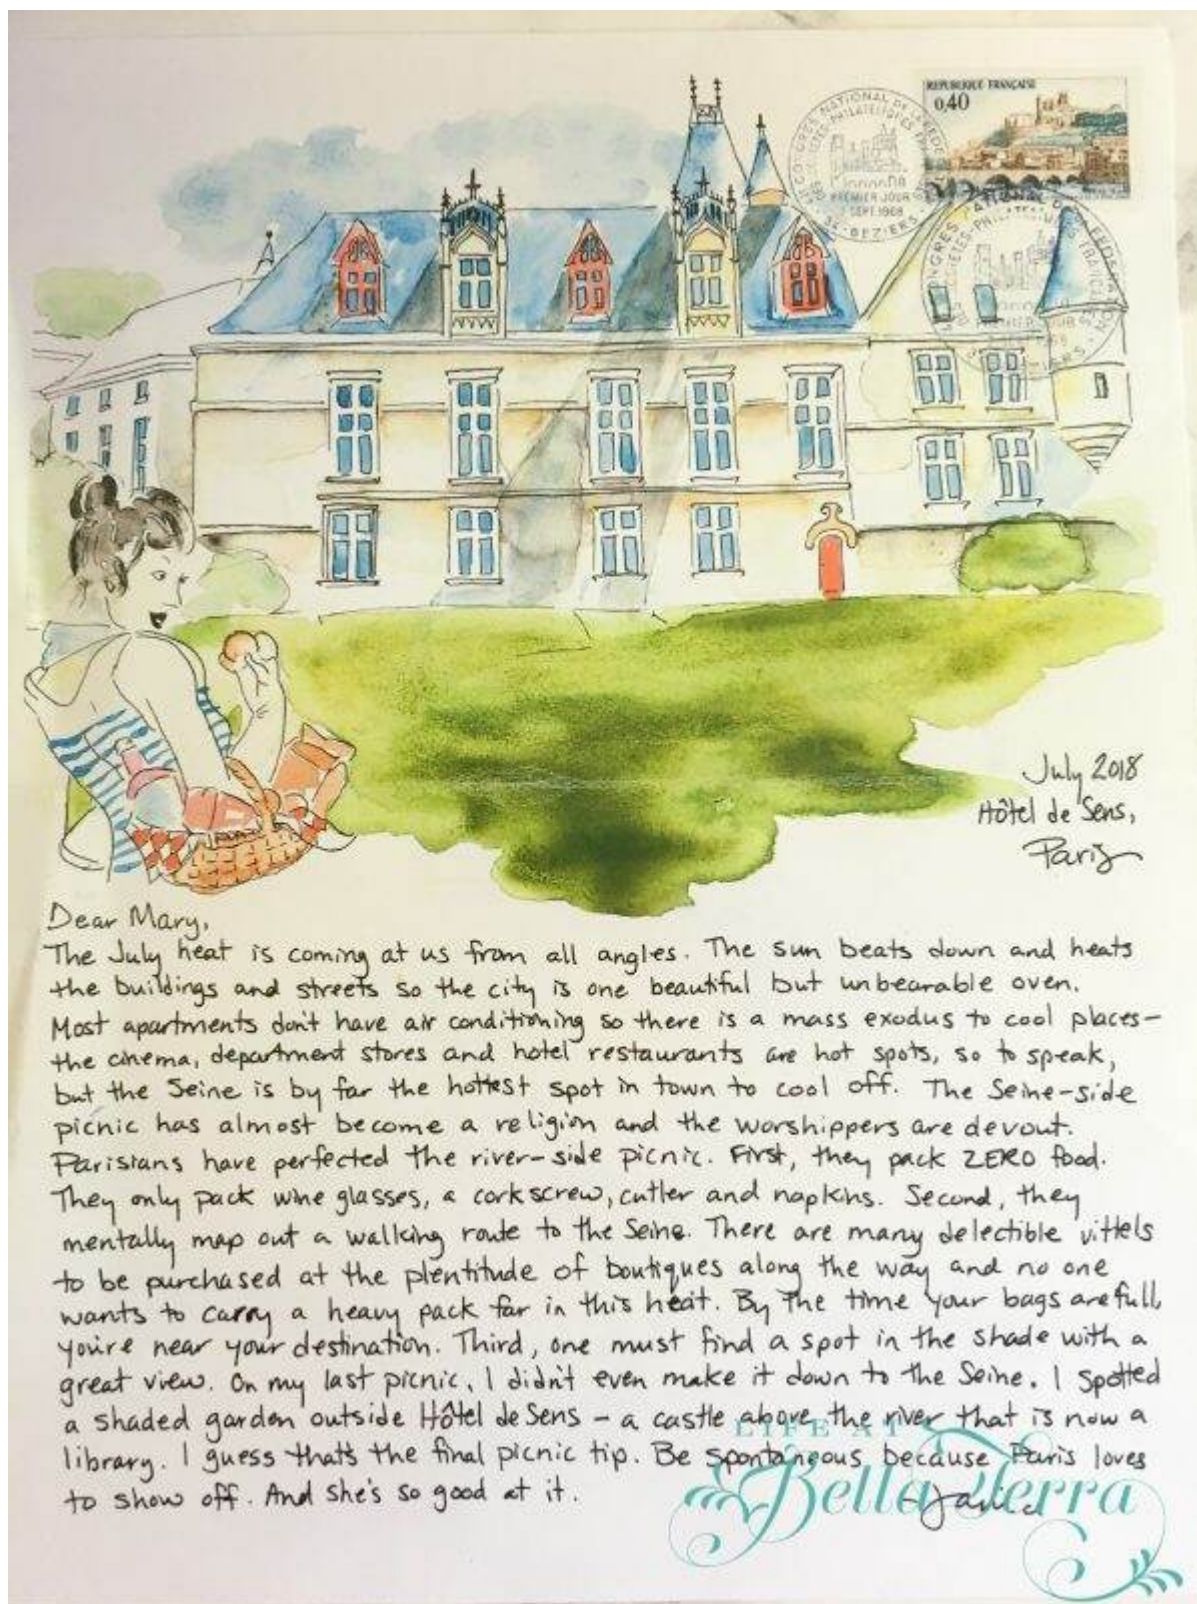 REPUBLIQUE FRANÇAISE
0,40
PREMIER JOUR
SEPT. 1968
34-BEZIERS
July 2018
Hôtel de Sens,
Paris
Dear Mary,
The July heat is coming at us from all angles. The sun beats down and heats
the buildings and streets so the city is one beautiful but unbearable oven.
Most apartments don't have air conditioning so there is a mass exodus to cool places-
the cinema, department stores and hotel restaurants are hot spots, so to speak,
but the Seine is by far the hottest spot in town to cool off. The Seine-side
picnic has almost become a religion and the worshippers are devout.
Parisians have perfected the river-side picnic. First, they pack ZERO food.
They only pack wine glasses, a corkscrew, cutler and napkins. Second, they
mentally map out a walking route to the Seine. There are many delectible vittels
to be purchased at the plentitude of boutiques along the way and no one
wants to carry a heavy pack far in this heat. By the time your bags are full,
you're near your destination. Third, one must find a spot in the shade with a
great view. On my last picnic, I didn't even make it down to the Seine. I spotted
a shaded garden outside Hôtel de Sens - a castle above the river that is now a
library. I guess that's the final picnic tip. Be spontaneous because Paris loves
to show off. And she's so good at it.
LIFE AT
Bella Terra